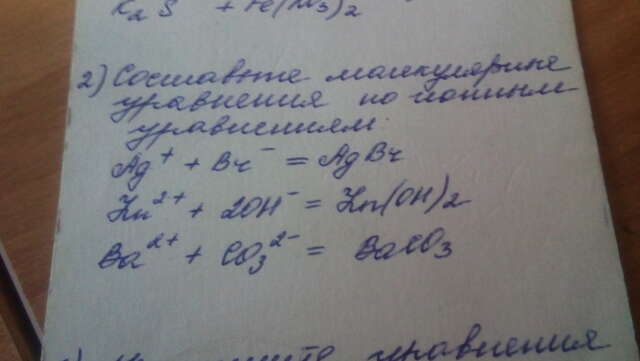 K₂S + Fe(NO₃)₂
2) Составьте молекулярные
уравнения по ионным
уравнениям:
Ag⁺ + Br⁻ = AgBr
Zn²⁺ + 2OH⁻ = Zn(OH)₂
Ba²⁺ + CO₃²⁻ = BaCO₃
уравнения